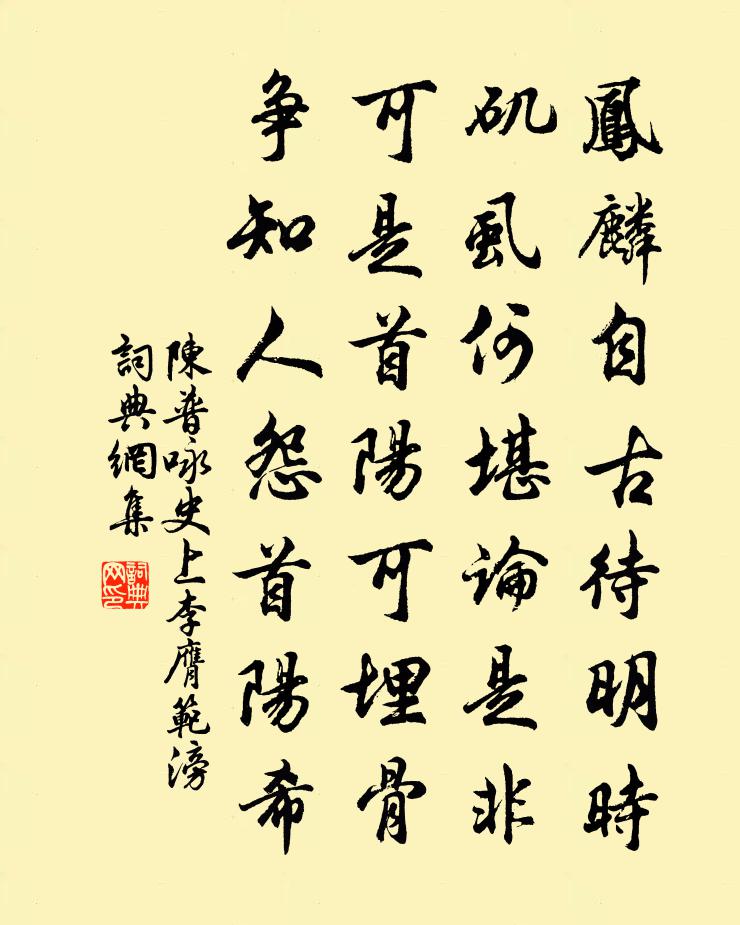 鳳麟自古待明時
矶虱何堪論是非
可是首陽可埋骨
争知人怨首陽希
陳普咏史上李膺範滂
詞典網集
詞典网印